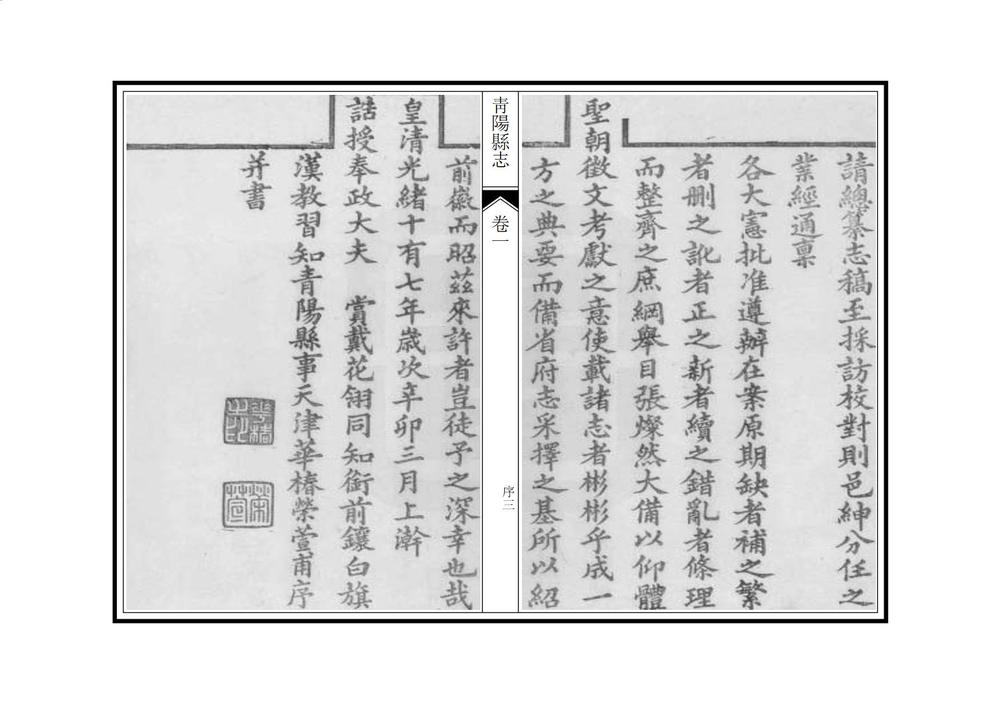 請總纂志稿至採訪校對則邑紳分任之
業經通稟
各大憲批准遵辦在案原期缺者補之繁
者刪之訛者正之新者續之錯亂者條理
而整齊之庶綱舉目張燦然大備以仰體
聖朝徵文考獻之意使載諸志者彬彬乎成一
方之典要而備省府志采擇之基所以紹
青陽縣志
卷一
序三
前徽而昭茲來許者豈徒予之深幸也哉
皇清光緒十有七年歲次辛卯三月上澣
誥授奉政大夫 賞戴花翎同知銜前鑲白旗
漢教習知青陽縣事天津華椿榮萱甫序
并書
華椿之印
榮萱